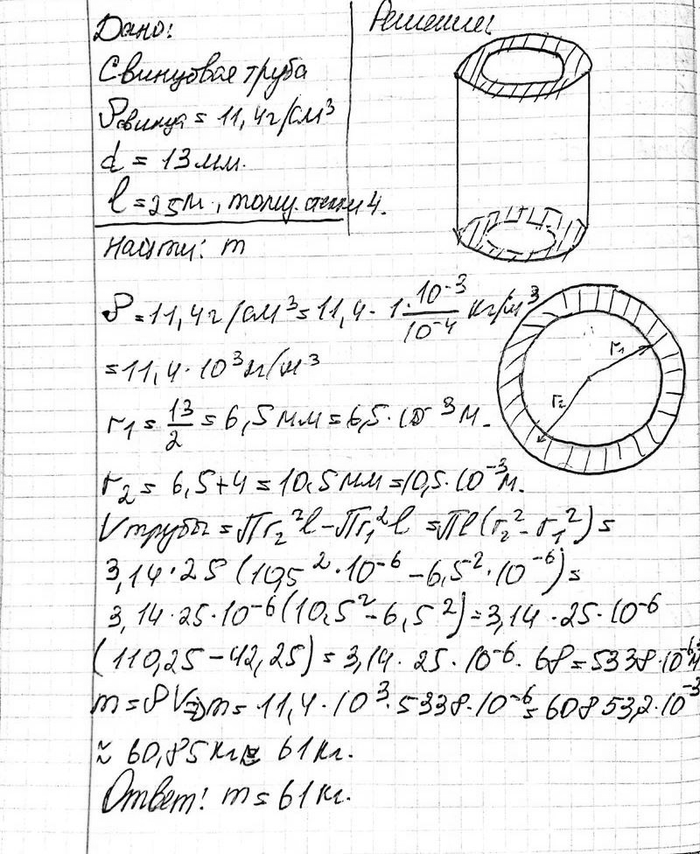 Дано:
Решение:
Свинцовая труба
ρсвинца = 11,4г/см³
d = 13мм.
l = 25м., толщ. стенки 4.
Найти: m
ρ = 11,4г/см³ = 11,4 · 1 · 10⁻³/10⁻⁴ кг/м³
= 11,4 · 10³ кг/м³
r₁
r₂
r₁ = 13/2 = 6,5мм = 6,5 · 10⁻³м.
r₂ = 6,5+4 = 10,5мм = 10,5 · 10⁻³м.
Vтрубы = Пr₂²l – Пr₁²l = Пl(r₂² – r₁²) =
3,14 · 25 (10,5² · 10⁻⁶ – 6,5² · 10⁻⁶) =
3,14 · 25 · 10⁻⁶(10,5² – 6,5²) = 3,14 · 25 · 10⁻⁶
(110,25 – 42,25) = 3,14 · 25 · 10⁻⁶ · 68 = 5338 · 10⁻⁶м³
m = ρV ⇒ m = 11,4 · 10³ · 5338 · 10⁻⁶ = 60853,2 · 10⁻³
≈ 60,85кг ≈ 61кг.
Ответ: m = 61кг.